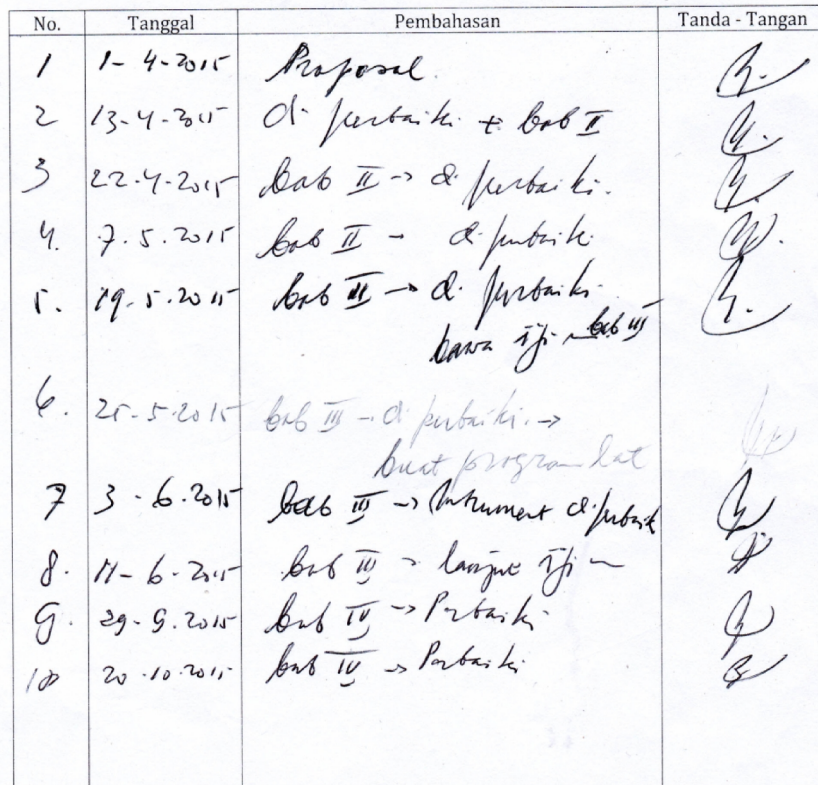 No. Tanggal Pembahasan Tanda - Tangan
1 1-4-2015 Proposal.
2 13-4-2015 di perbaiki + bab II
3 22-4-2015 bab II → di perbaiki.
4. 7.5.2015 bab II - di perbaiki
5. 19-5.2015 bab II → di perbaiki.
bawa iji bab III
6. 25-5-2015 bab III - di perbaiki. →
buat program lat
7 3-6.2015 bab III → Intrument diperbaik
8. 11-6-2015 bab III → lanjut iji
9. 29-9.2015 bab IV → Perbaiki
10 20-10-2015 bab IV → Perbaiki